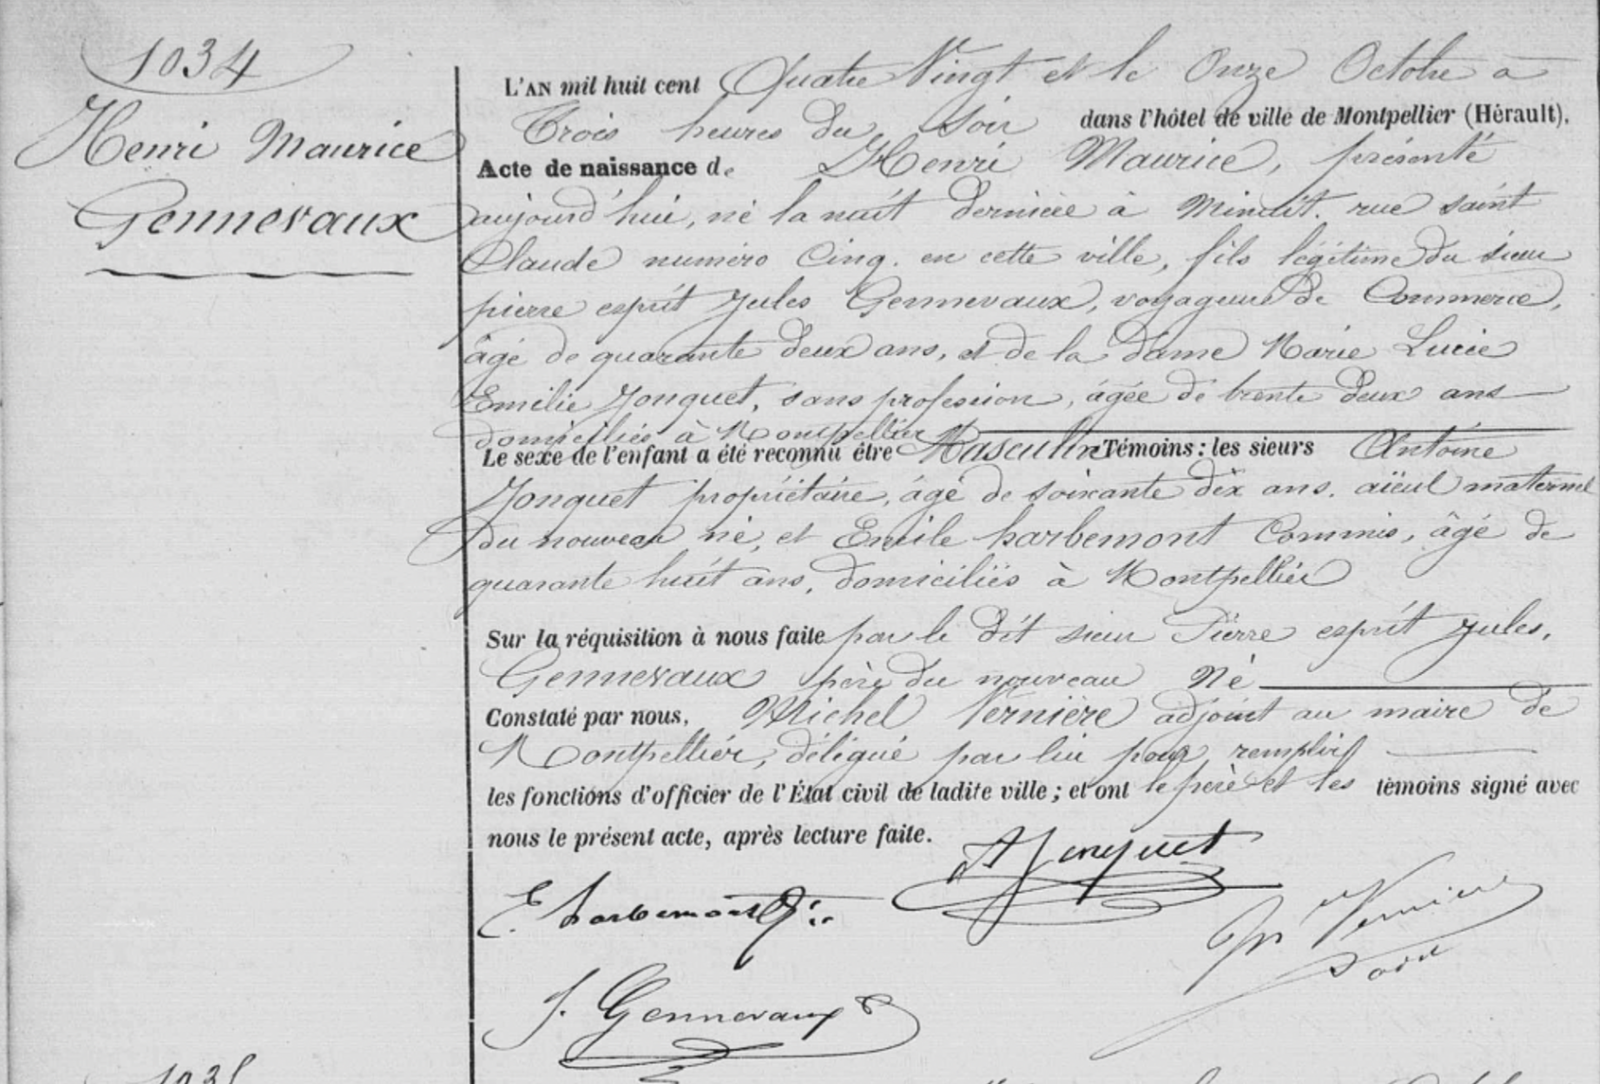 1034
Henri Maurice
Gennevaux
L'AN mil huit cent Quatre Vingt et le Onze Octobre a
Trois heures du Soir dans l'hôtel de ville de Montpellier (Hérault).
Acte de naissance de Henri Maurice, présenté
aujourd'hui, né la nuit dernière à Minuit. rue saint
Claude numéro Cinq. en cette ville, fils légitime du sieur
pierre esprit jules Gennevaux, voyageur de Commerce,
âgé de quarante deux ans, et de la dame Marie Lucie
Emilie Jonquet, sans profession, âgée de trente deux ans
domiciliés à Montpellier
Le sexe de l'enfant a été reconnu être Masculin Témoins : les sieurs Antoine
Jonquet propriétaire, âgé de soixante dix ans. aïeul maternel
du nouveau né, et Emile barbemont Commis, âgé de
quarante huit ans, domiciliés à Montpellier
Sur la réquisition à nous faite par le dit sieur Pierre esprit jules,
Gennevaux père du nouveau Né
Constaté par nous, Michel Vernière adjoint au maire de
Montpellier, délégué par lui pour remplir
les fonctions d'officier de l'État civil de ladite ville ; et ont le père et les témoins signé avec
nous le présent acte, après lecture faite.
A Jonquet
E. barbemont
Vernière
J. Gennevaux
1035